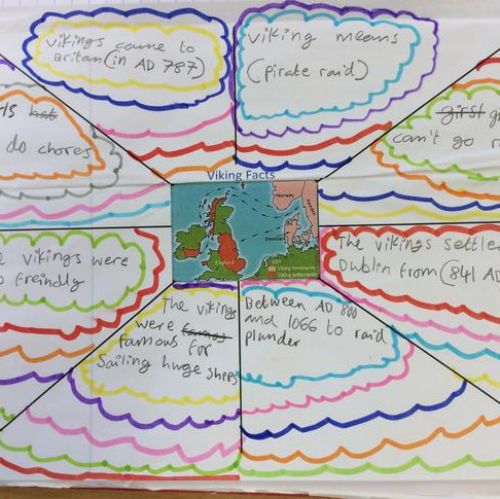 vikings came to
Britan (in AD 787)
viking means
(pirate raid)
do chores
girst
can't go
Viking Facts
Norway
Denmark
England
KEY
Viking homelands
Viking settlements
vikings were
freindly
The vikings settle
Dublin from (841 AD
The viking
were
famous for
Sailing huge sheeps
Between AD 800
and 1066 to raid
plunder